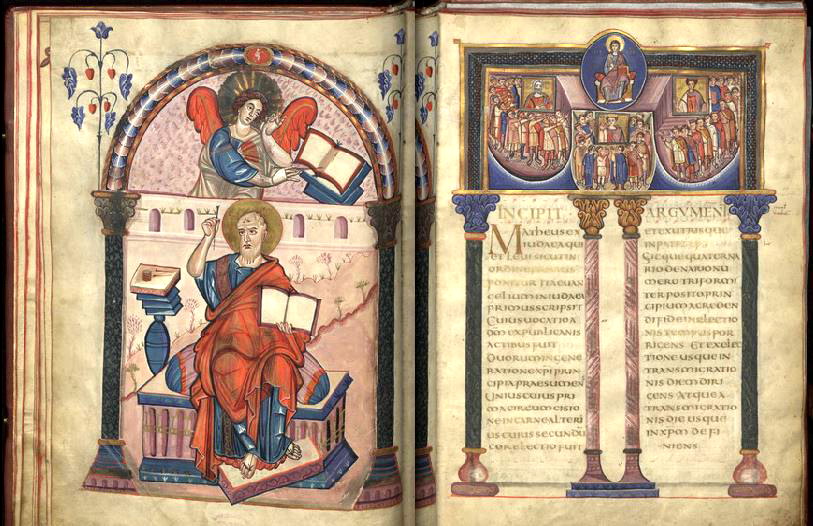 INCIPIT
MATHEUS EX
IUDAEA QUI
ET LEUI SICUT IN
ORDINE PRIMUS
PONITUR ITA EUAN
GELIUM IN IUDAEA
PRIMUS SCRIPSIT
CUIUS UOCATIO A
DM EX PUBLICANIS
ACTIBUS FUIT
DUORUM IN GENE
RATIONE XPI PRIN
CIPIA PRAESUMENS
UNIUS CUIUS PRI
MA CIRCUMCISIO
NE IN CARNE ALTERI
US CUIUS SECUNDU
COR ELECTIO FUIT
ARGVMENT
ET EX UTRISQUE
IN
SICQUE QUATERNA
RIO DENARIO NU
MERO TRIFORMI
TER POSITO PRIN
CIPIUM A CREDEN
DI FIDE IN ELECTIO
NIS TEMPUS POR
RIGENS ET EX ELEC
TIONE USQUE IN
TRANSMIGRATIO
NIS DIEM DIRI
GENS ATQUE A
TRANSMIGRATIO
NIS DIE USQUE
IN XPM DEFI
NIENS